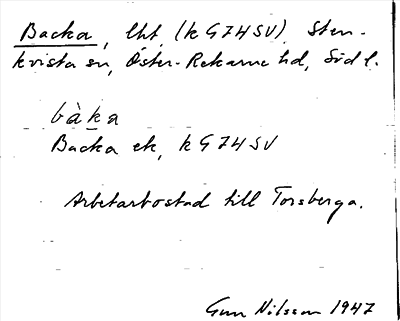 Backa, lht (k G74SV) Sten-
kvista sn, Öster-Rekarne hd, Söd l.
bàka
Backa ek, k G74SV
Arbetarbostad till Torsberga.
Gun Nilsson 1947